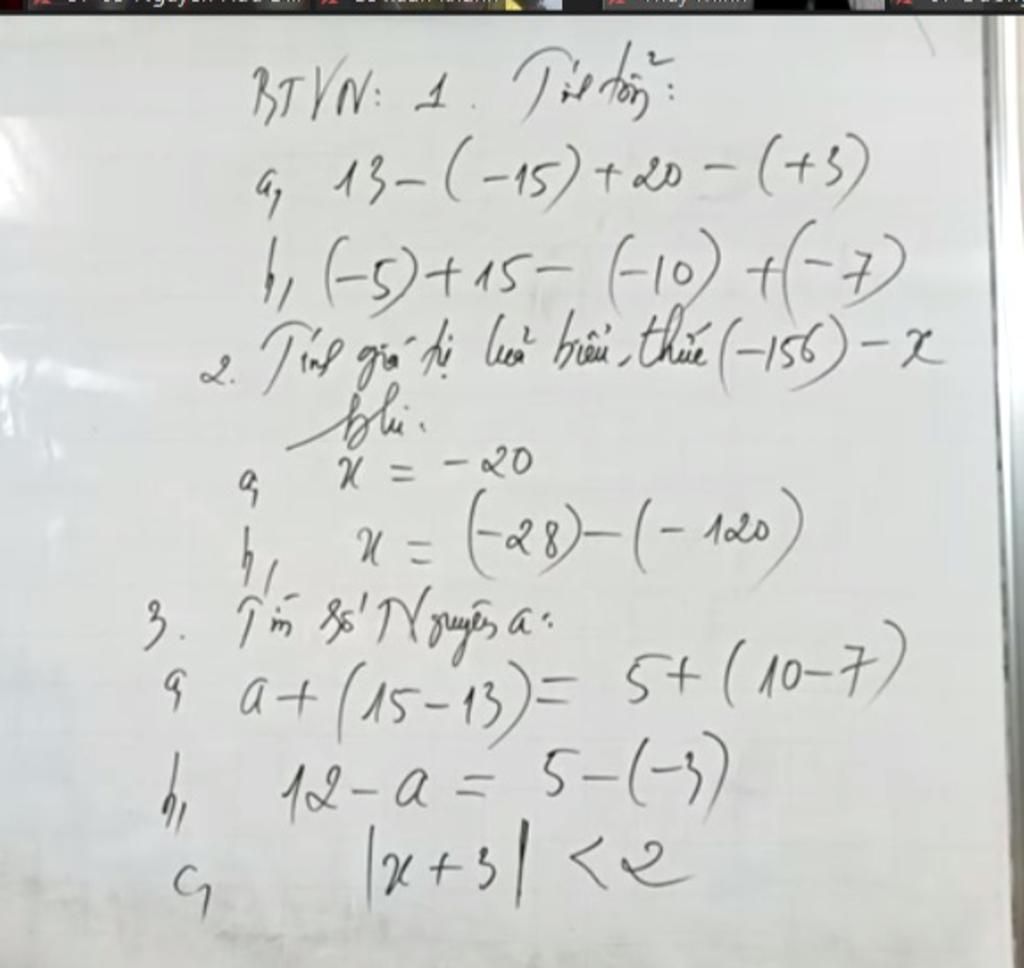 BTVN: 1. Tính tổng:
a, 13 - (-15) + 20 - (+3)
b, (-5) + 15 - (-10) + (-7)
2. Tính giá trị của biểu thức (-156) - x
khi:
a, x = -20
b, x = (-28) - (-120)
3. Tìm số Nguyên a:
a, a + (15 - 13) = 5 + (10 - 7)
b, 12 - a = 5 - (-3)
c, |x + 3| < 2